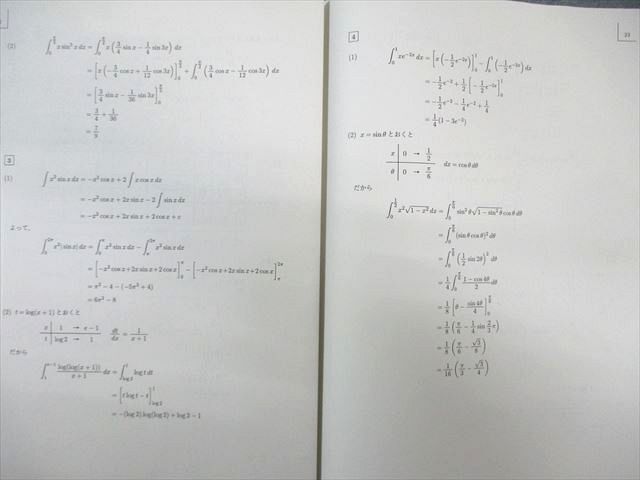 (2) ∫_0^{π/2} x sin³ x dx = ∫_0^{π/2} x (3/4 sin x − 1/4 sin 3x) dx
= [x (−3/4 cos x + 1/12 cos 3x)]_0^{π/2} + ∫_0^{π/2} (3/4 cos x − 1/12 cos 3x) dx
= [3/4 sin x − 1/36 sin 3x]_0^{π/2}
= 3/4 + 1/36
= 7/9
3
(1) ∫ x² sin x dx = −x² cos x + 2 ∫ x cos x dx
= −x² cos x + 2x sin x − 2 ∫ sin x dx
= −x² cos x + 2x sin x + 2 cos x + c
よって,
∫_0^{2π} x²|sin x| dx = ∫_0^π x² sin x dx − ∫_π^{2π} x² sin x dx
= [−x² cos x + 2x sin x + 2 cos x]_0^π − [−x² cos x + 2x sin x + 2 cos x]_π^{2π}
= π² − 4 − (−5π² + 4)
= 6π² − 8
(2) t = log(x + 1) とおくと
x | 1 → e − 1
t | log 2 → 1
dt/dx = 1/(x + 1)
だから
∫_1^{e−1} log(log(x + 1))/(x + 1) dx = ∫_{log 2}^1 log t dt
= [t log t − t]_{log 2}^1
= −(log 2) log(log 2) + log 2 − 1
23
4
(1) ∫_0^1 xe^{−2x} dx = [x (−1/2 e^{−2x})]_0^1 − ∫_0^1 (−1/2 e^{−2x}) dx
= −1/2 e^{−2} + 1/2 [−1/2 e^{−2x}]_0^1
= −1/2 e^{−2} − 1/4 e^{−2} + 1/4
= 1/4 (1 − 3e^{−2})
(2) x = sin θ とおくと
x | 0 → 1/2
θ | 0 → π/6
dx = cos θ dθ
だから
∫_0^{1/2} x² √(1 − x²) dx = ∫_0^{π/6} sin² θ √(1 − sin² θ) cos θ dθ
= ∫_0^{π/6} (sin θ cos θ)² dθ
= ∫_0^{π/6} (1/2 sin 2θ)² dθ
= 1/4 ∫_0^{π/6} (1 − cos 4θ)/2 dθ
= 1/8 [θ − sin 4θ/4]_0^{π/6}
= 1/8 (π/6 − 1/4 sin 2/3 π)
= 1/8 (π/6 − √3/8)
= 1/16 (π/3 − √3/4)